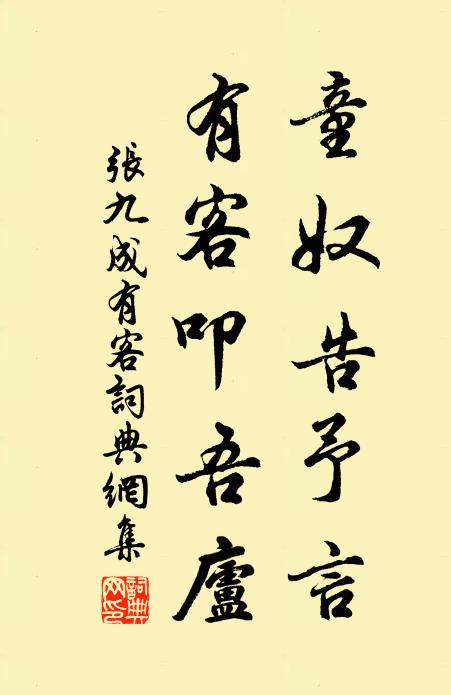 童奴告予言
有客叩吾廬
張九成有客詞典網集
詞典网印